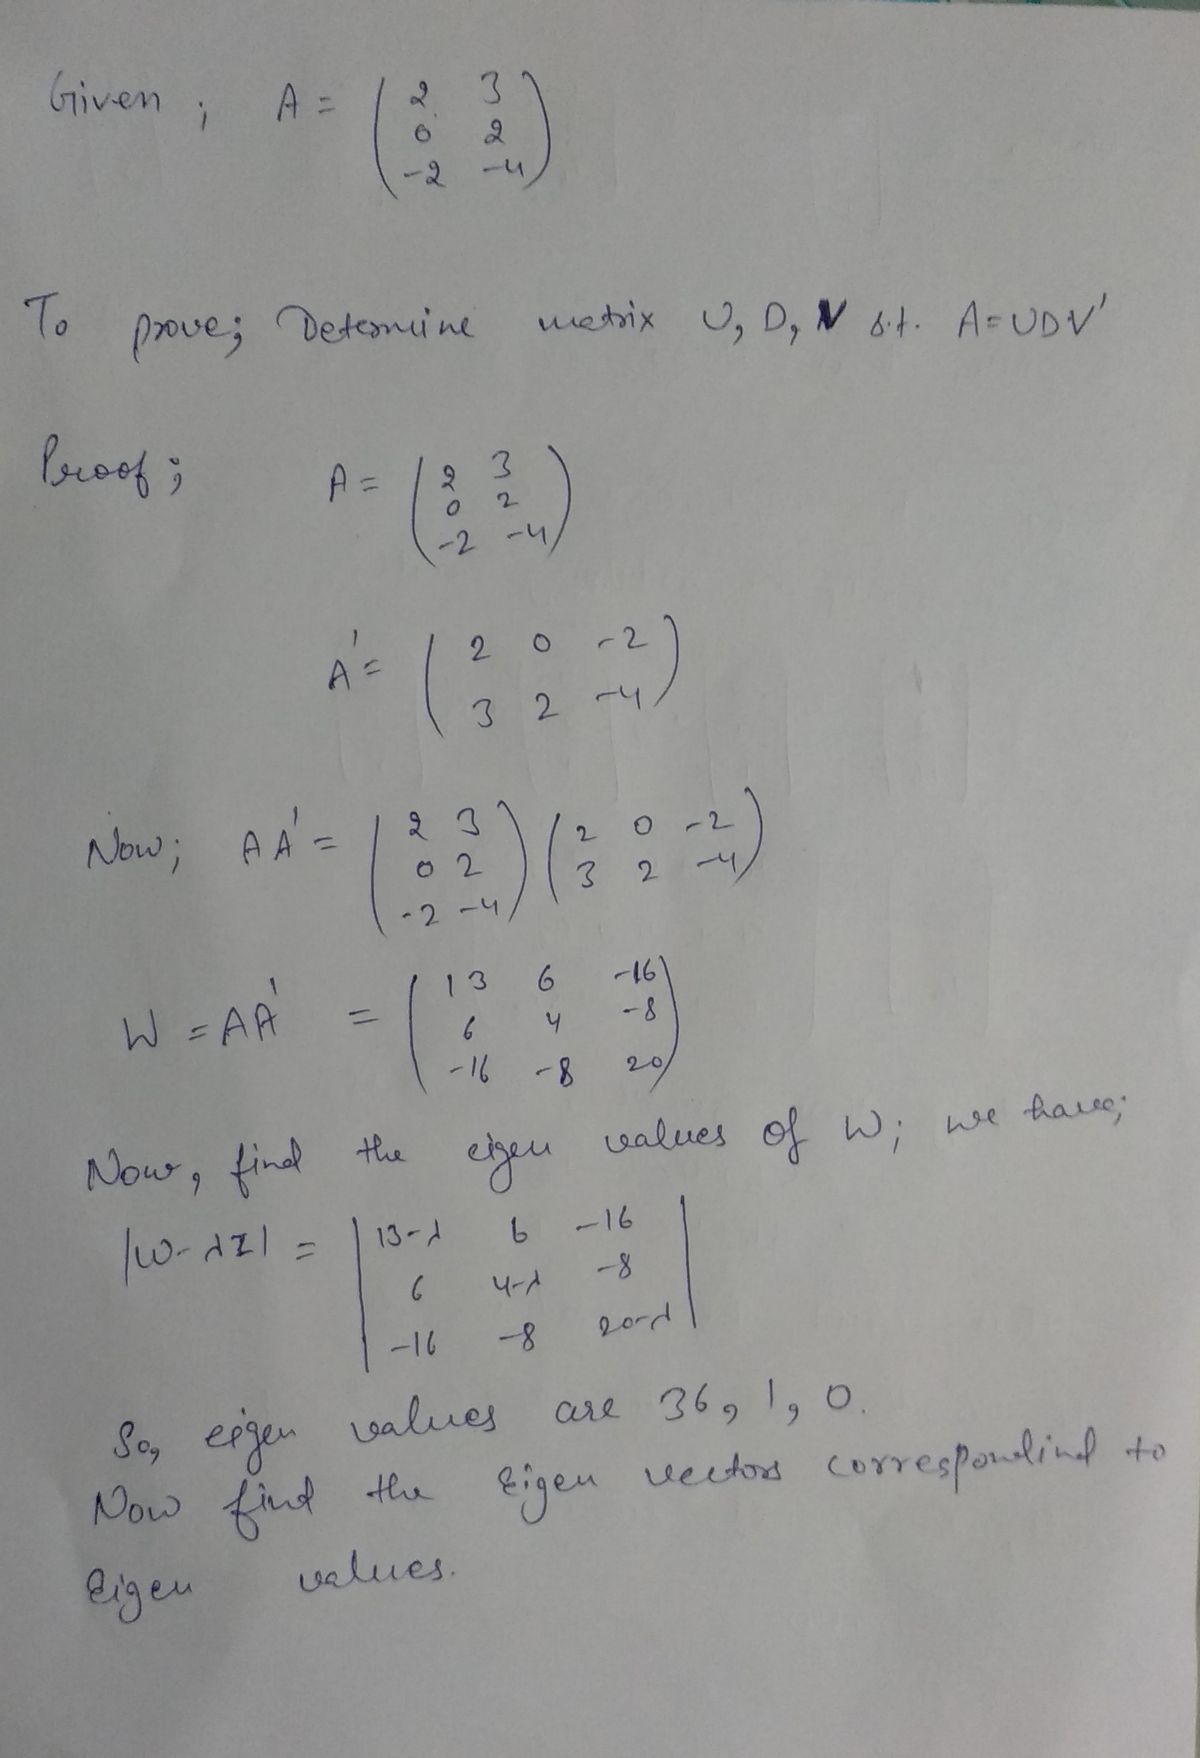 Given; A = ( 2 3
0 2
-2 -4 )
To prove; Determine matrix U, D, V s.t. A=UDV'
Proof; A = ( 2 3
0 2
-2 -4 )
A' = ( 2 0 -2
3 2 -4 )
Now; AA' = ( 2 3
0 2
-2 -4 ) ( 2 0 -2
3 2 -4 )
W = AA' = ( 13 6 -16
6 4 -8
-16 -8 20 )
Now, find the eigen values of W; we have;
|W-λI| = | 13-λ 6 -16
6 4-λ -8
-16 -8 20-λ |
So, eigen values are 36, 1, 0.
Now find the Eigen vectors correspondind to
Eigen values.